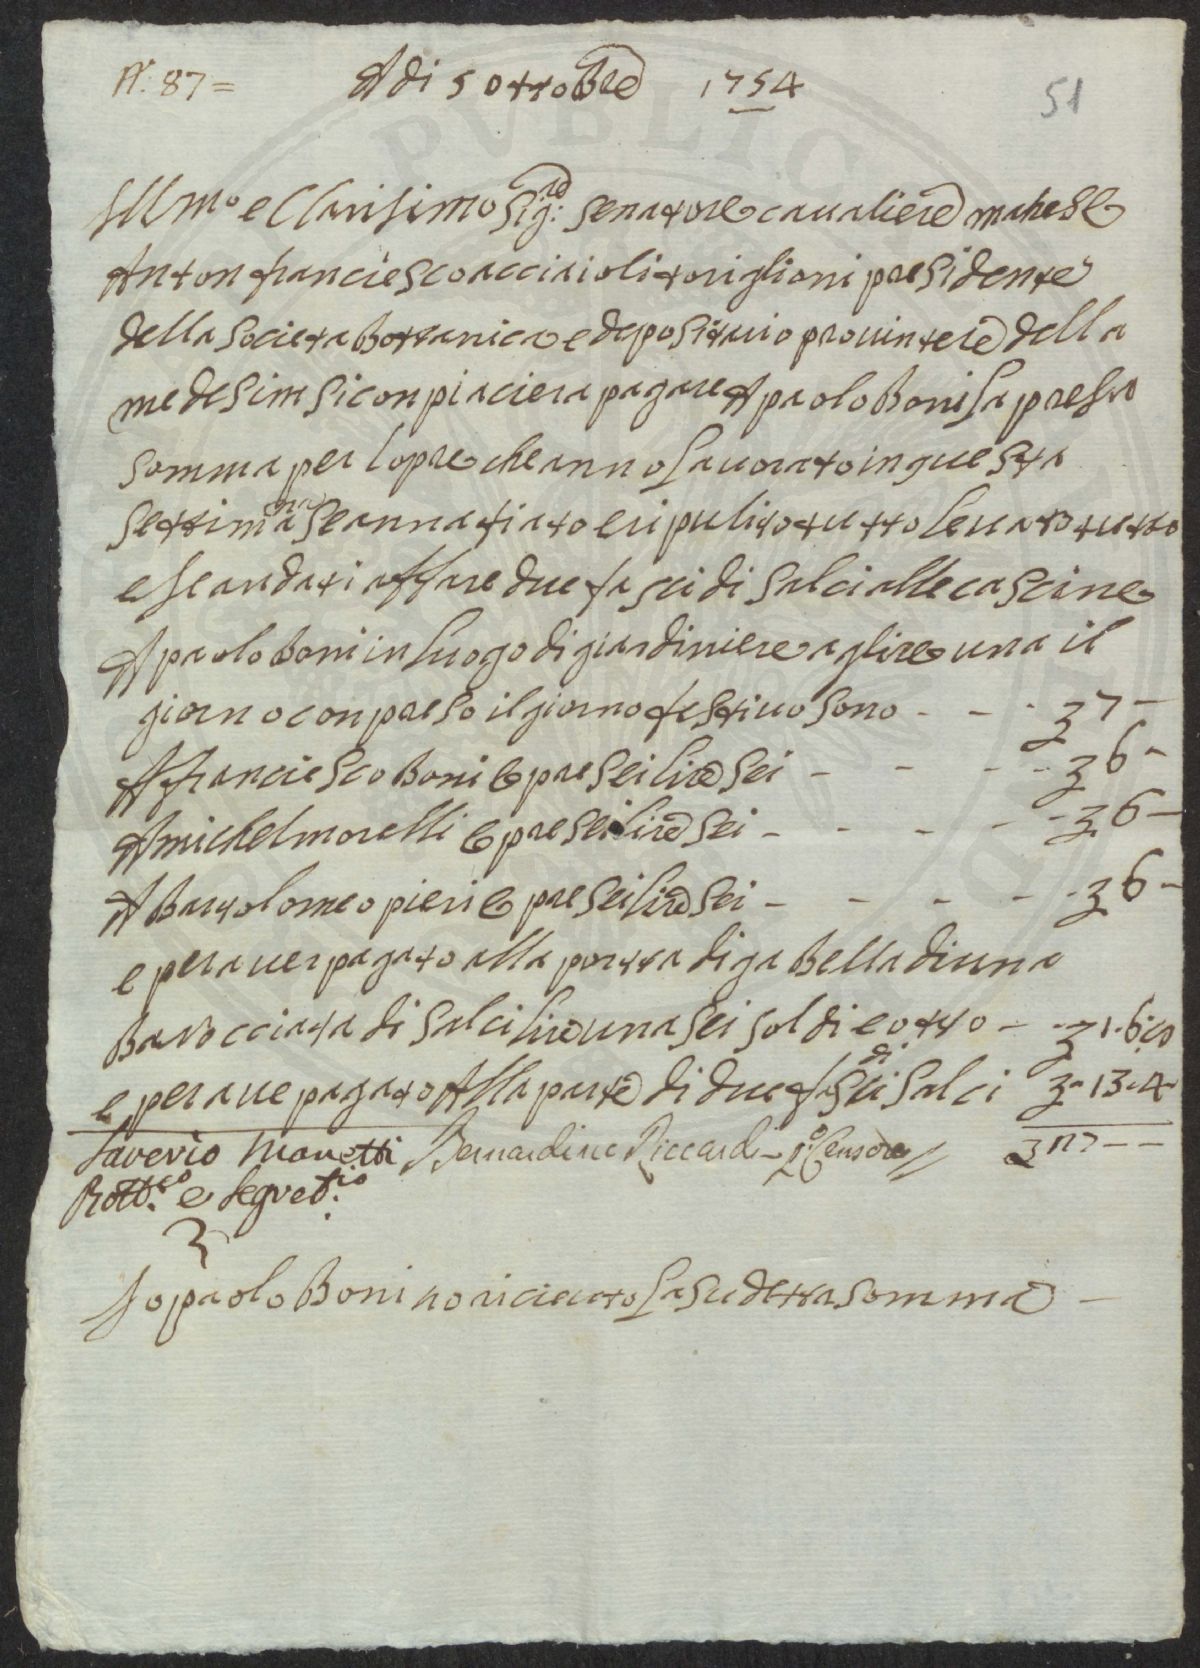 N.° 87 =
A di 5 ottobre 1754
51
Ill mo e Clarisimo Sig:re Senatore cavaliere mahese
Anton franciesco acciaioli toriglioni presidente
della Societa Bottanica e depositario provintere della
medesim si conpiaciera pagare A paolo Boni la presto
somma per lopre che anno lavorato in questa
settimana se annafiato e ripulito tutto levato tutto
e se andati affare due fasci di Salci alle cascine
A paolo Boni in luogo di giardiniere a glire una il
giorno conpreso il giorno festivo sono - - - 37 -
A franciesco Boni 6 pre sei lire sei - - - - 36 -
A michel morelli 6 pre sei lire sei - - - - - 36 -
A Bartolomeo pieri 6 pre sei lire sei - - - - - 36 -
e per aver pagato alla portta di gabella di una
Barocciata di Salci lire una sei soldi e otto - - 31.6:8
e per ave pagato Alla parte di due fasci di Salci 3-13-4-
Saverio Manetti Bernardino Riccardi p° Censore // 327 - -
Prott.co e Segret.rio
Io paolo Boni ho ricievuto la sudetta somma -